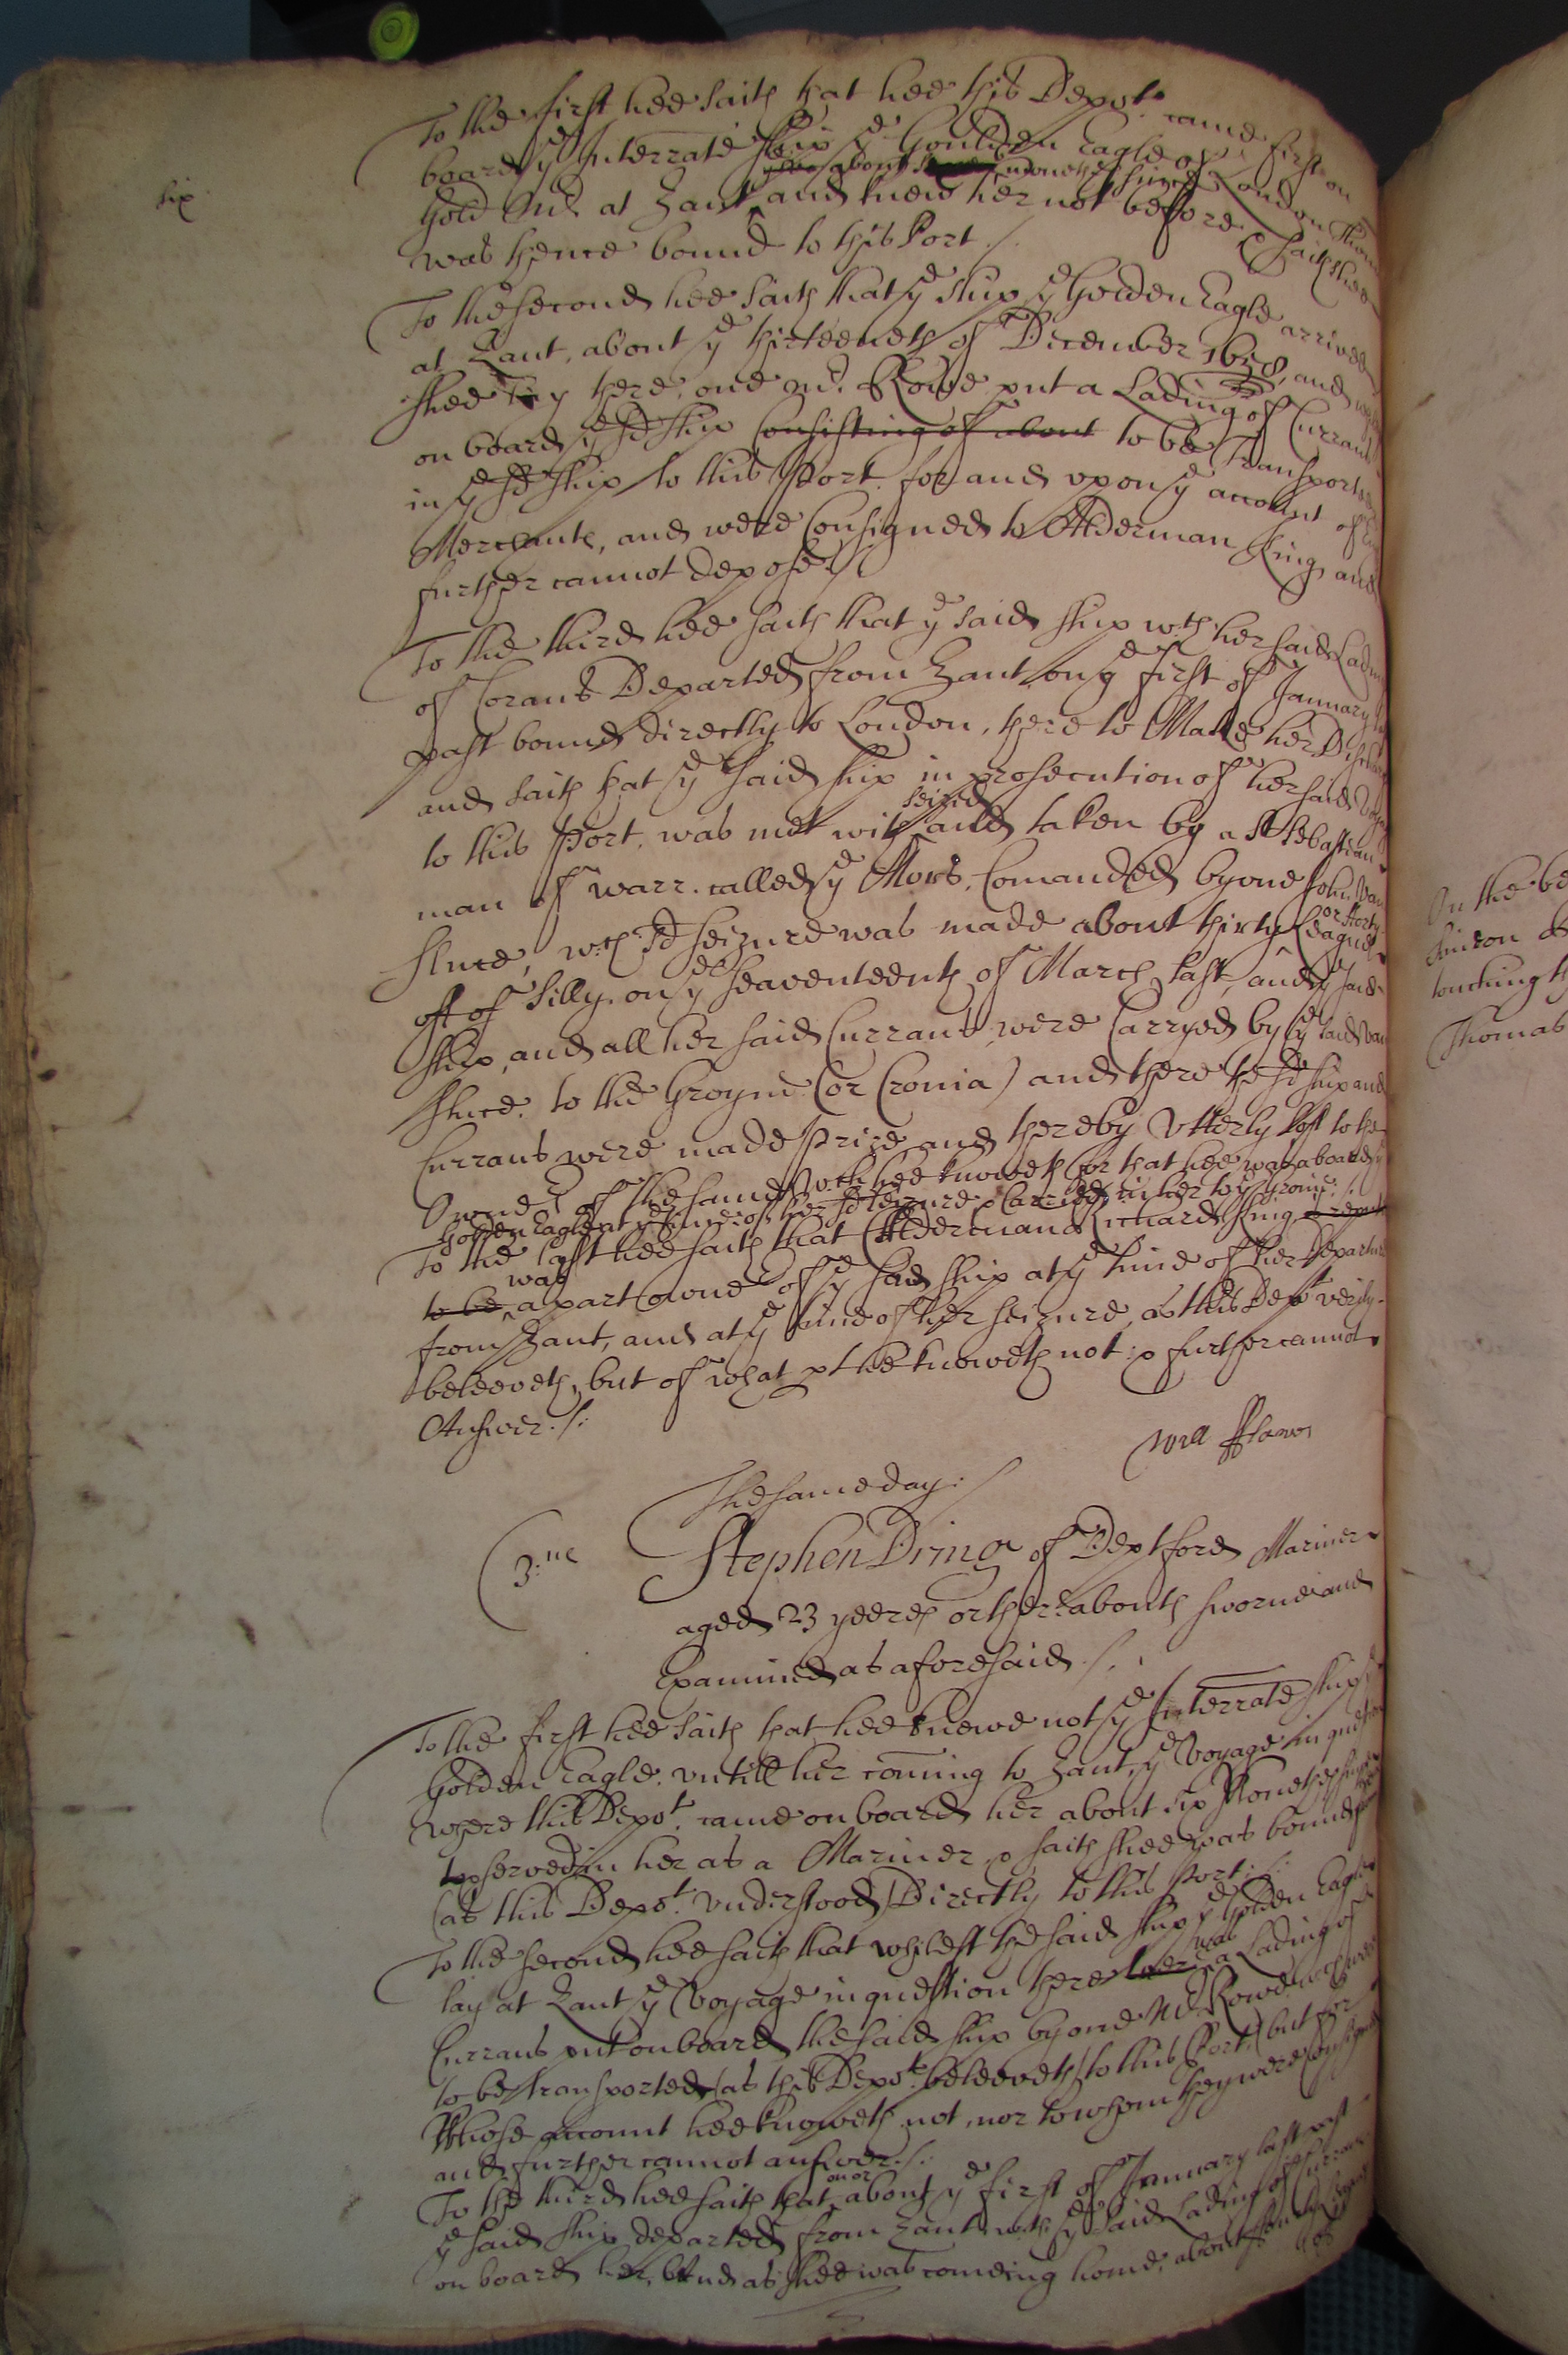 To the first hee saith that hee this Depot. came first on
board ye Interrate ship ye Goulden Eagle of London Thom
about monethes since
Gold Mr. at Zant, and knew her not before & saith shee
six
was thence bound to this Port ./
To the second hee saith that ye ship ye Golden Eagle arrived
at Zant, about ye thirteeneth of December 1658, and
shee lay there, one Mr. Rowe put a Lading of Currans
on board ye sd ship Consisting of about to be Transported
in ye sd ship to this Port for and upon ye account of
Merchants, and were Consigned to Alderman King and
further cannot depose ./
To the third hee saith that ye said ship wth. her said Lading
of Corans Departed from Zant on ye first of January
past bound directly to London, there to Make her Discharge
and saith that ye said ship in prosecution of her said voyage
seized
to this Port, was met with and taken by a St Sebastian
man of warr. called ye Mors, Comanded by one John Van
or Forty
Sluce, wch. sd seizure was made about thirty Leagues
off of Silly, on ye seaventeenth of March last, and ye said
ship, and all her said Currans were Carryed by ye said Van
Sluce. to the Groyne (or Cronia) and there the sd ship and
Currans were made Prize and thereby Utterly lost to the
Owners of the same wch hee knoweth for that hee was aboard ye
Golden Eagle at ye time of her sd seizure & Carried in her to ye Groine ./.
To the last hee saith that Alderman Richard King
was
to be, a part owner of ye said ship at ye time of her departure
from Zant, and at ye time of her seizure, as this Dept verily
beleeveth, but of what pt hee knoweth not : & further cannot
Answer ./:
Will Flawn
The same day :/
3.ue
Stephen Dring of Deptford Mariner
aged 23 yeeres or thereabouts sworne and
Examined as aforesaid ./.
To the first hee saith that hee knewe not ye Interrate ship
Golden Eagle. untill her coming to Zant, ye Voyage in question
where this Depot. came on board her about six Monethes since
& served in her as a Mariner, & saith shee was bound
(as this Depot. understood) Directly to this Port ./:
To the second hee saith that whilest the said ship ye Golden Eagle
was
lay at Zant ye Voyage in question there were a Lading of
Currans put on board the said ship by one Mr. Rowe. wch were
to be transported (as this Depot. beleeveth) to this Port, but for
Whose account hee knoweth not, nor to whom they were Consigned
and further cannot answer ./:
on or
To the third hee saith that about ye first of January last past
ye said ship departed from Zant with ye said Lading of Currans
on board her, And as shee was comeing home, about
On the be
touching th
Thomas